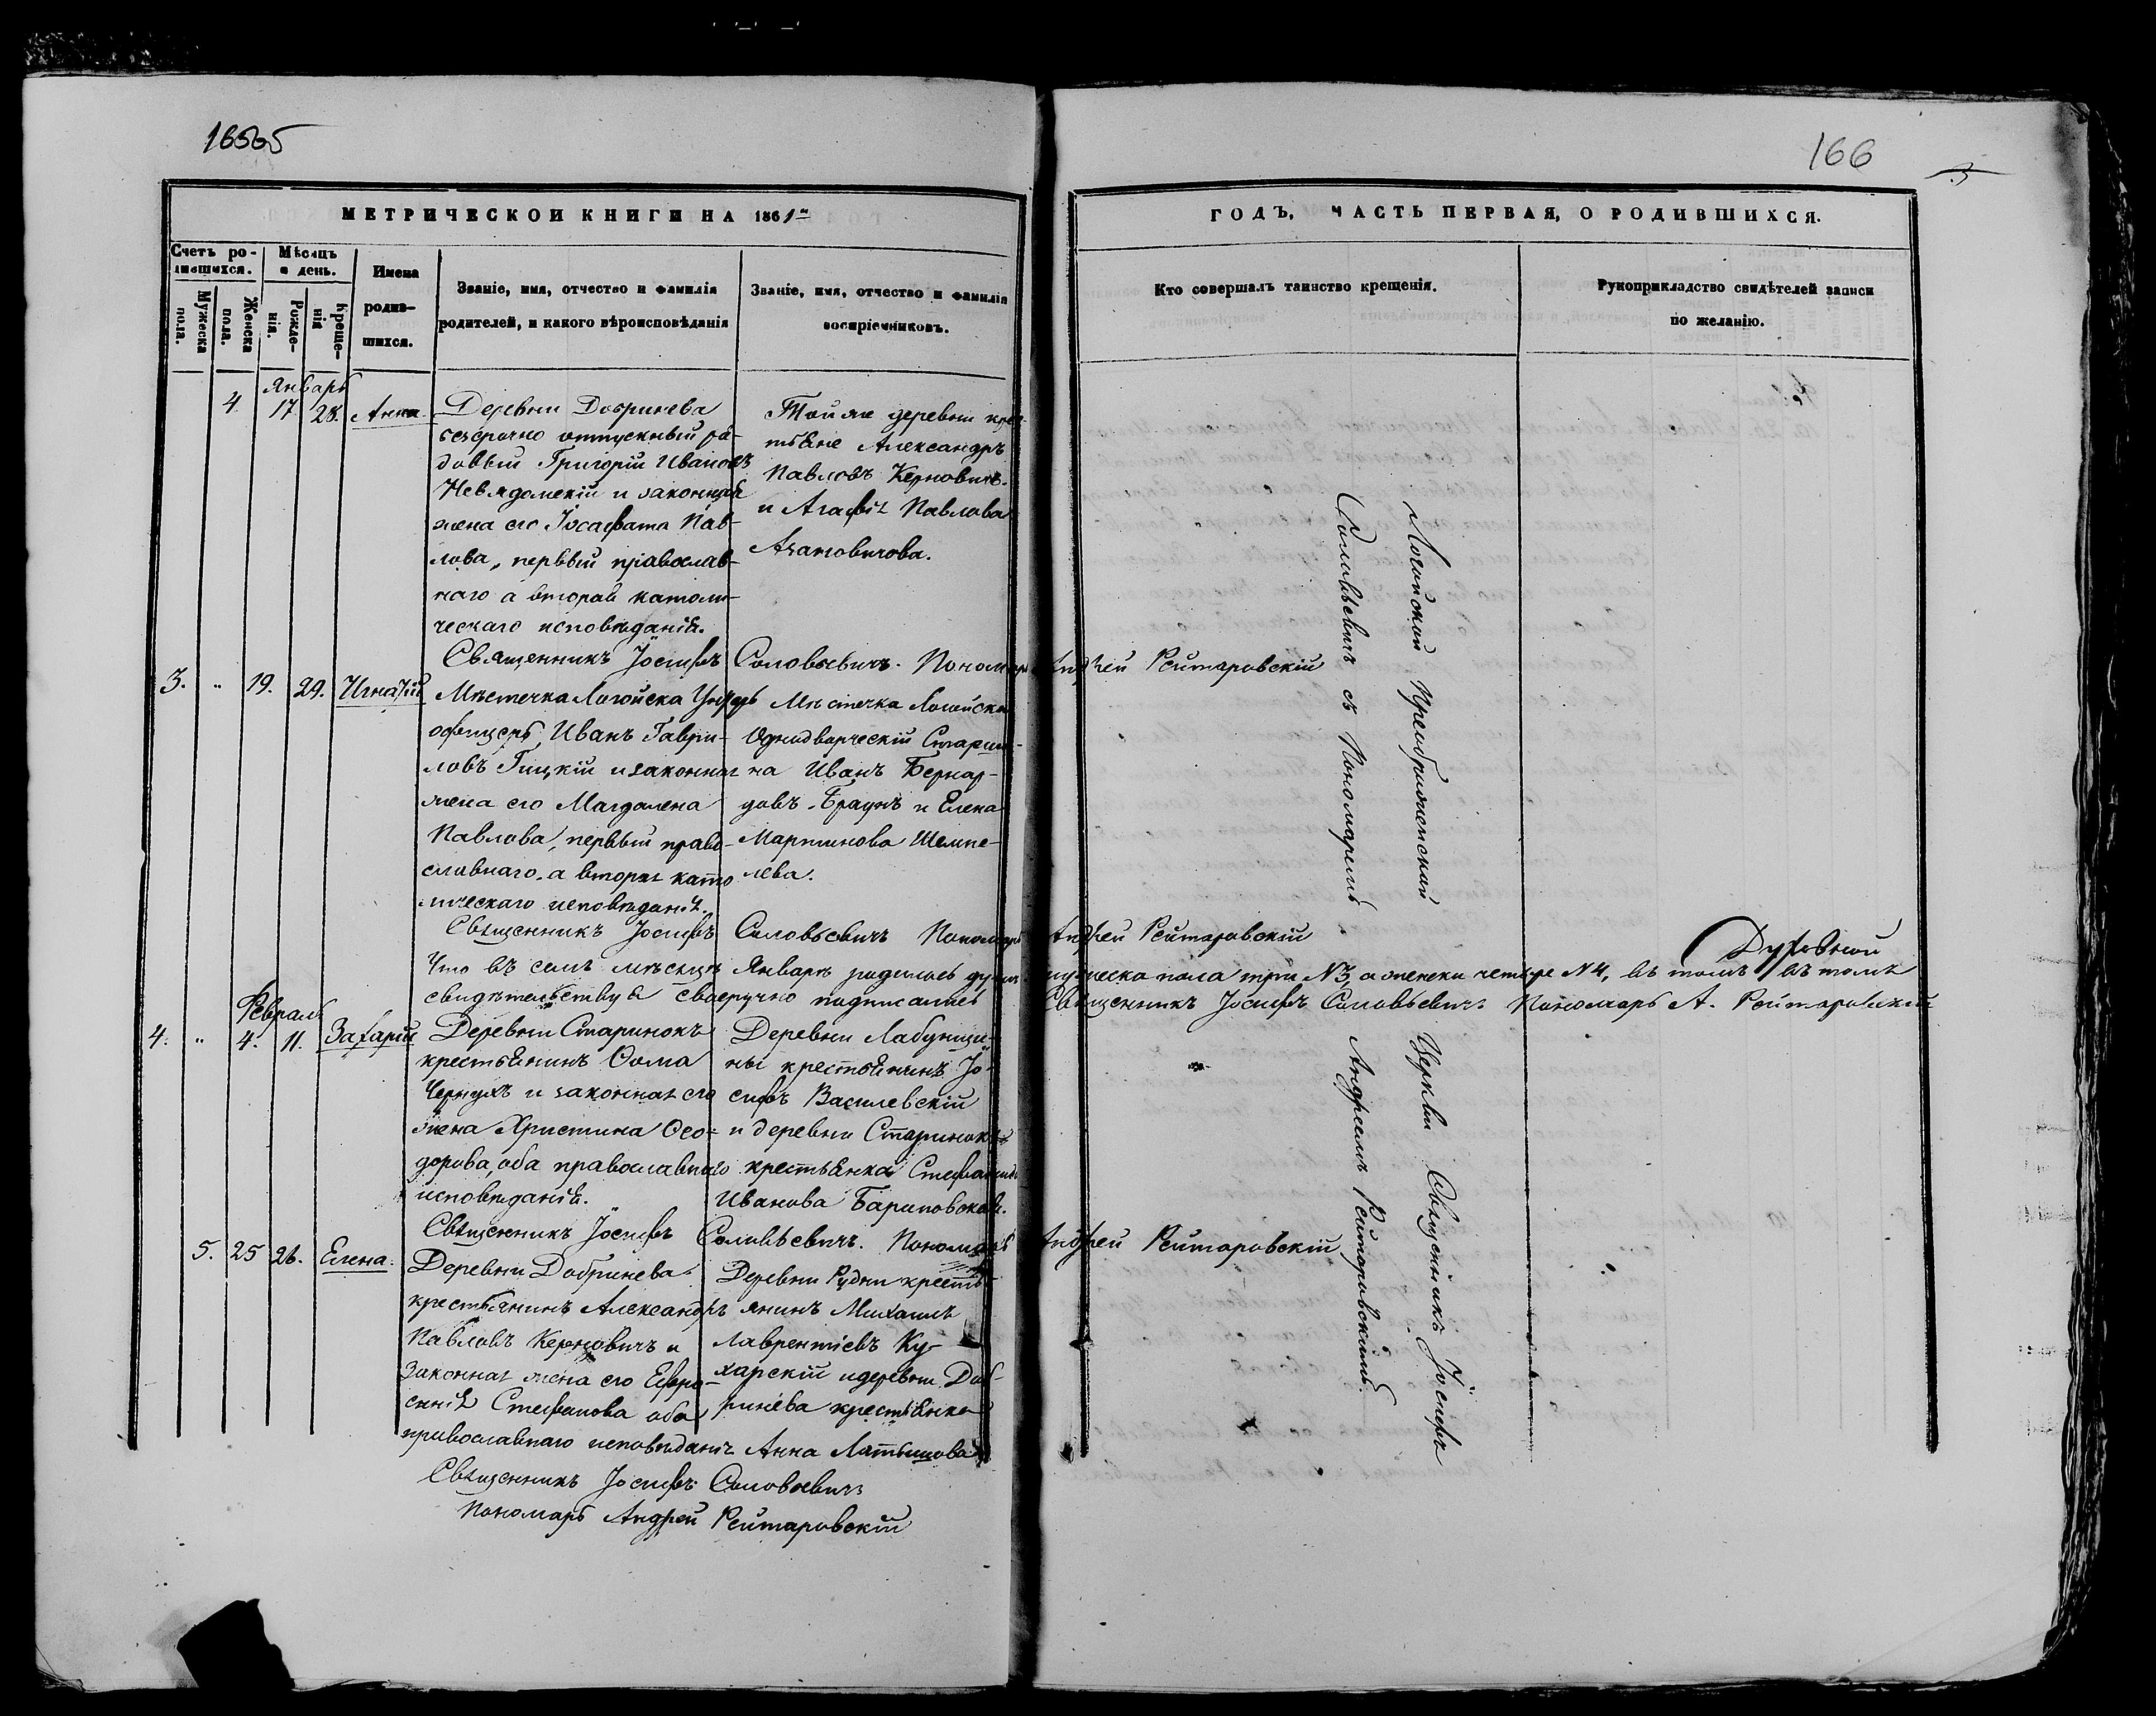 166
МЕТРИЧЕСКОЙ КНИГИ НА 1861й
ГОДЪ, ЧАСТЬ ПЕРВАЯ, О РОДИВШИХСЯ.
Счетъ ро-
дившихся.
Мужеска
пола.
Женска
пола.
Мѣсяцъ
и день.
Рожде-
нія.
Креще-
нія
Имена
родив-
шихся.
Званіе, имя, отчество и фамилія
родителей, и какого вѣроисповѣданія
Званіе, имя, отчество и фамилія
воспріемниковъ.
Кто совершалъ таинство крещенія.
Рукоприкладство свидѣтелей записи
по желанію.
Январь
4. 17 28. Анна
Деревни Добринева
безсрочно отпускный ря-
довый Григорій Ивановъ
Невядомскій и законная
жена его Іосафата Пав-
лова, первый православ-
наго а вторая католи-
ческаго исповѣданія.
Той же деревни крес-
тьяне Александръ
Павловъ Керновичъ
и Агафія Павлова
Азановичова.
Священникъ Іосифъ Соловьевичъ. Пономарь Андрей Рейтаровскій
3. " 19. 29. Игнатій
Мѣстечка Логойска Унтеръ
офицеръ Иванъ Гаври-
ловъ Гицкій и законная
жена его Магдалена
Павлова, первый право-
славнаго, а вторая като
лическаго исповѣданія.
Мѣстечка Логойска
Однодворческій Старши-
на Иванъ Бернар-
довъ Браунъ и Елена
Мартинова Шемпе-
лева.
Священникъ Іосифъ Соловьевичъ Пономарь Андрей Рейтаровскій
Что въ семъ мѣсяцѣ Январѣ родилось душъ мужеска пола три №3, а женска четыре №4, въ томъ въ томъ
свидѣтельствуя своеручно подписались Священникъ Іосифъ Соловьевичъ Пономарь А. Рейтаровскій
Февраль
4. " 4. 11. Захарій
Деревни Старинокъ
крестьянинъ Ѳома
Чернухъ и законная его
жена Христина Ѳео-
дорова, оба православнаго
исповѣданія.
Деревни Лабунщи-
ны крестьянинъ Іо-
сифъ Василевскій
и деревни Старинокъ
крестьянка Стефанида
Иванова Бариповская.
Священникъ Іосифъ Соловьевичъ. Пономарь Андрей Рейтаровскій
5. 25 26. Елена.
Деревни Добринева
крестьянинъ Александръ
Павловъ Керновичъ и
законная жена его Евфро-
синія Стефанова оба
православнаго исповѣданія
Деревни Рудни кресть-
янинъ Михаилъ
Лаврентіевъ Ку-
харскій и деревни Доб-
ринева крестьянка
Анна Латышова
Священникъ Іосифъ Соловьевичъ
Пономарь Андрей Рейтаровскій
Логойской Преображенской Церкви Священникъ Іосифъ
Соловьевичъ съ Пономаремъ Андреемъ Рейтаровскимъ.